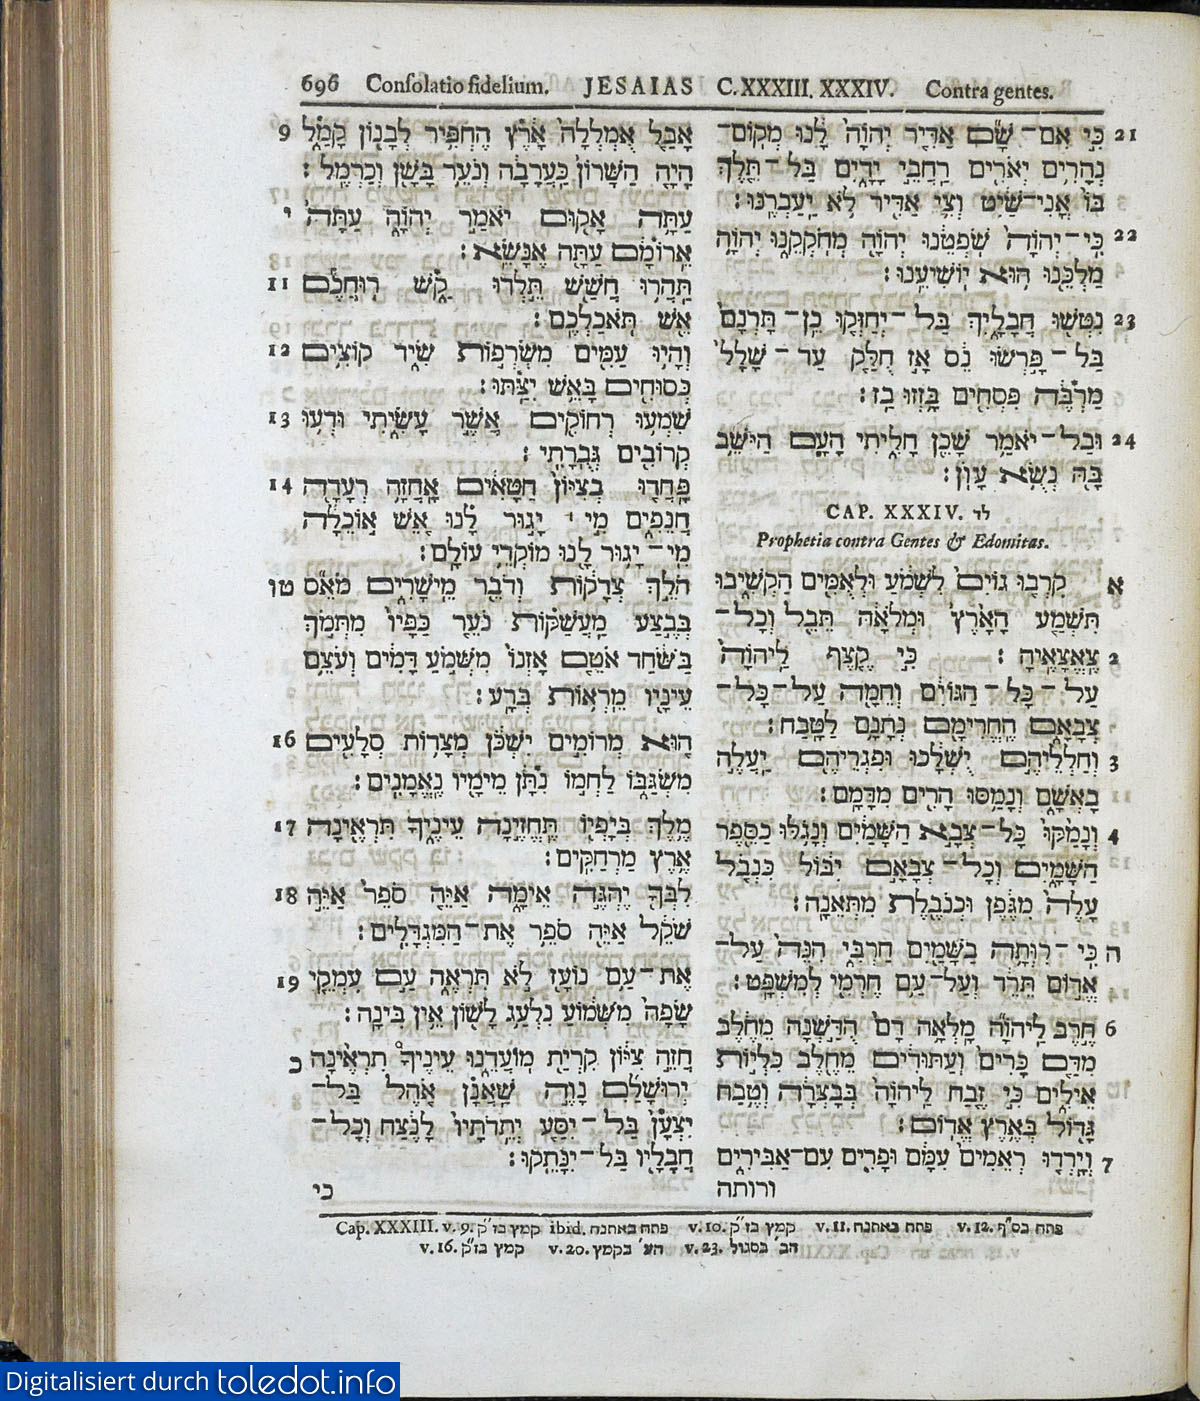 696 Consolatio fidelium. JESAIAS C. XXXIII. XXXIV. Contra gentes.
אָבַל אֻמְלְלָה אָרֶץ הֶחְפִּיר לְבָנוֹן קָמַל 9
הָיָה הַשָּׁרוֹן כָּעֲרָבָה וְנֹעֵר בָּשָׁן וְכַרְמֶל׃
עַתָּה אָקוּם יֹאמַר יְהוָה עַתָּה י
אֵרוֹמָם עַתָּה אֶנָּשֵׂא׃
תַּהֲרוּ חֲשַׁשׁ תֵּלְדוּ קַשׁ רוּחֲכֶם 11
אֵשׁ תֹּאכַלְכֶם׃
וְהָיוּ עַמִּים מִשְׂרְפוֹת שִׂיד קוֹצִים 12
כְּסוּחִים בָּאֵשׁ יִצַּתּוּ׃
שִׁמְעוּ רְחוֹקִים אֲשֶׁר עָשִׂיתִי וּדְעוּ 13
קְרוֹבִים גְּבֻרָתִי׃
פָּחֲדוּ בְצִיּוֹן חַטָּאִים אָחֲזָה רְעָדָה 14
חֲנֵפִים מִי ׀ יָגוּר לָנוּ אֵשׁ אוֹכֵלָה
מִי־יָגוּר לָנוּ מוֹקְדֵי עוֹלָם׃
הֹלֵךְ צְדָקוֹת וְדֹבֵר מֵישָׁרִים מֹאֵס טו
בְּבֶצַע מַעֲשַׁקּוֹת נֹעֵר כַּפָּיו מִתְּמֹךְ
בַּשֹּׁחַד אֹטֵם אָזְנוֹ מִשְּׁמֹעַ דָּמִים וְעֹצֵם
עֵינָיו מֵרְאוֹת בְּרָע׃
הוּא מְרוֹמִים יִשְׁכֹּן מְצָדוֹת סְלָעִים 16
מִשְׂגַּבּוֹ לַחְמוֹ נִתָּן מֵימָיו נֶאֱמָנִים׃
מֶלֶךְ בְּיָפְיוֹ תֶּחֱזֶינָה עֵינֶיךָ תִּרְאֶינָה 17
אֶרֶץ מַרְחַקִּים׃
לִבְּךָ יֶהְגֶּה אֵימָה אַיֵּה סֹפֵר אַיֵּה 18
שֹׁקֵל אַיֵּה סֹפֵר אֶת־הַמִּגְדָּלִים׃
אֶת־עַם נוֹעָז לֹא תִרְאֶה עַם עִמְקֵי 19
שָׂפָה מִשְּׁמוֹעַ נִלְעַג לָשׁוֹן אֵין בִּינָה׃
חֲזֵה צִיּוֹן קִרְיַת מוֹעֲדֵנוּ עֵינֶיךָ תִרְאֶינָה כ
יְרוּשָׁלִַם נָוֶה שַׁאֲנָן אֹהֶל בַּל־
יִצְעָן בַּל־יִסַּע יְתֵדֹתָיו לָנֶצַח וְכָל־
חֲבָלָיו בַּל־יִנָּתֵקוּ׃
כי
21 כִּי אִם־שָׁם אַדִּיר יְהוָה לָנוּ מְקוֹם־
נְהָרִים יְאֹרִים רַחֲבֵי יָדָיִם בַּל־תֵּלֶךְ
בּוֹ אֳנִי־שַׁיִט וְצִי אַדִּיר לֹא יַעַבְרֶנּוּ׃
22 כִּי־יְהוָה שֹׁפְטֵנוּ יְהוָה מְחֹקְקֵנוּ יְהוָה
מַלְכֵּנוּ הוּא יוֹשִׁיעֵנוּ׃
23 נִטְּשׁוּ חֲבָלָיִךְ בַּל־יְחַזְּקוּ כֵן־תָּרְנָם
בַּל־פָּרְשׂוּ נֵס אָז חֻלַּק עַד־שָׁלָל
מַרְבֶּה פִּסְחִים בָּזְזוּ בַז׃
24 וּבַל־יֹאמַר שָׁכֵן חָלִיתִי הָעָם הַיֹּשֵׁב
בָּהּ נְשֻׂא עָוֹן׃
CAP. XXXIV. לד
Prophetia contra Gentes & Edomitas.
א קִרְבוּ גוֹיִם לִשְׁמֹעַ וּלְאֻמִּים הַקְשִׁיבוּ
תִּשְׁמַע הָאָרֶץ וּמְלֹאָהּ תֵּבֵל וְכָל־
2 צֶאֱצָאֶיהָ׃ כִּי קֶצֶף לַיהוָה
עַל־כָּל־הַגּוֹיִם וְחֵמָה עַל־כָּל־
צְבָאָם הֶחֱרִימָם נְתָנָם לַטָּבַח׃
3 וְחַלְלֵיהֶם יֻשְׁלָכוּ וּפִגְרֵיהֶם יַעֲלֶה
בָאְשָׁם וְנָמַסּוּ הָרִים מִדָּמָם׃
4 וְנָמַקּוּ כָּל־צְבָא הַשָּׁמַיִם וְנָגֹלּוּ כַסֵּפֶר
הַשָּׁמָיִם וְכָל־צְבָאָם יִבּוֹל כִּנְבֹל
עָלֶה מִגֶּפֶן וּכְנֹבֶלֶת מִתְּאֵנָה׃
ה כִּי־רִוְּתָה בַשָּׁמַיִם חַרְבִּי הִנֵּה עַל־
אֱדוֹם תֵּרֵד וְעַל־עַם חֶרְמִי לְמִשְׁפָּט׃
6 חֶרֶב לַיהוָה מָלְאָה דָם הֻדַּשְׁנָה מֵחֵלֶב
מִדַּם כָּרִים וְעַתּוּדִים מֵחֵלֶב כִּלְיוֹת
אֵילִים כִּי זֶבַח לַיהוָה בְּבָצְרָה וְטֶבַח
גָּדוֹל בְּאֶרֶץ אֱדוֹם׃
7 וְיָרְדוּ רְאֵמִים עִמָּם וּפָרִים עִם־אַבִּירִים
ורותה
Cap. XXXIII. v. 9. קמץ בז״ק ibid. פתח באתנח v. 10. קמץ בז״ק v. 11. פתח באתנח v. 12. פתח בס״ף
v. 16. קמץ בז״ק v. 20. הע׳ בקמץ v. 23. הב׳ בסגול
Digitalisiert durch toledot.info